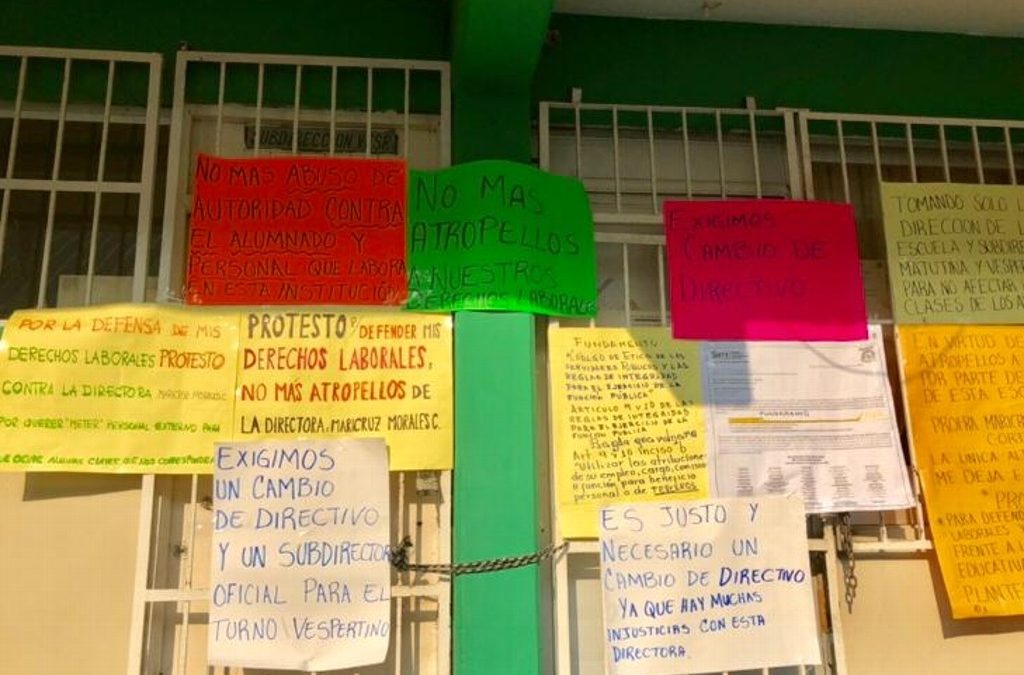 SUBDIRECCION VESP.
NO MAS ABUSO DE
AUTORIDAD CONTRA
EL ALUMNADO Y
PERSONAL QUE LABORA
EN ESTA INSTITUCIÓN
NO MAS
ATROPELLOS
A NUESTROS
DERECHOS LABORALES
EXIGIMOS
CAMBIO DE
DIRECTIVO
TOMANDO SOLO L
DIRECCION DE L
ESCUELA Y SUBDIRE
MATUTINA Y VESPE
PARA NO AFECTAR
CLASES DE LOS A
POR LA DEFENSA DE MIS
DERECHOS LABORALES PROTESTO
CONTRA LA DIRECTORA MARICRUZ MORALES C.
POR QUERER "METER" PERSONAL EXTERNO PARA
ALGUNAS CLASES QUE NOS CORRESPONDEN
PROTESTO P. DEFENDER MIS
DERECHOS LABORALES,
NO MÁS ATROPELLOS DE
LA DIRECTORA, MARICRUZ MORALES C.
FUNDAMENTO
"CODIGO DE ETICA DE LOS
SERVIDORES PUBLICOS Y LAS
REGLAS DE INTEGRIDAD
PARA EL EJERCICIO DE LA
FUNCIÓN PUBLICA"
ARTICULO 9 Y 10 DE LAS
REGLAS DE INTEGRIDAD
PARA EL EJERCICIO DE LA
FUNCIÓN PUBLICA
Art 9 y 10 inciso b
"Utilizar las atribuciones
de su empleo, cargo, comision
o función para beneficio
personal o de TERCEROS
FUNDAMENTO
EN VIRTUD DE
ATROPELLOS A
POR PARTE
DE ESTA ES
PROFRA MARIC
LA UNICA AL
ME DEJA E
*PARA DEFEND
LABORALES
FRENTE A L
EDUCATIVA
PLANTE
EXIGIMOS
UN CAMBIO
DE DIRECTIVO
Y UN SUBDIRECTOR
OFICIAL PARA EL
TURNO VESPERTINO
ES JUSTO Y
NECESARIO UN
CAMBIO DE DIRECTIVO
YA QUE HAY MUCHAS
INJUSTICIAS CON ESTA
DIRECTORA.